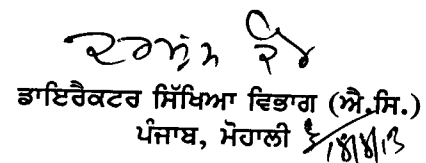 ਡਾਇਰੈਕਟਰ ਸਿੱਖਿਆ ਵਿਭਾਗ (ਐ.ਸਿ.)
ਪੰਜਾਬ, ਮੋਹਾਲੀ 18/8/13